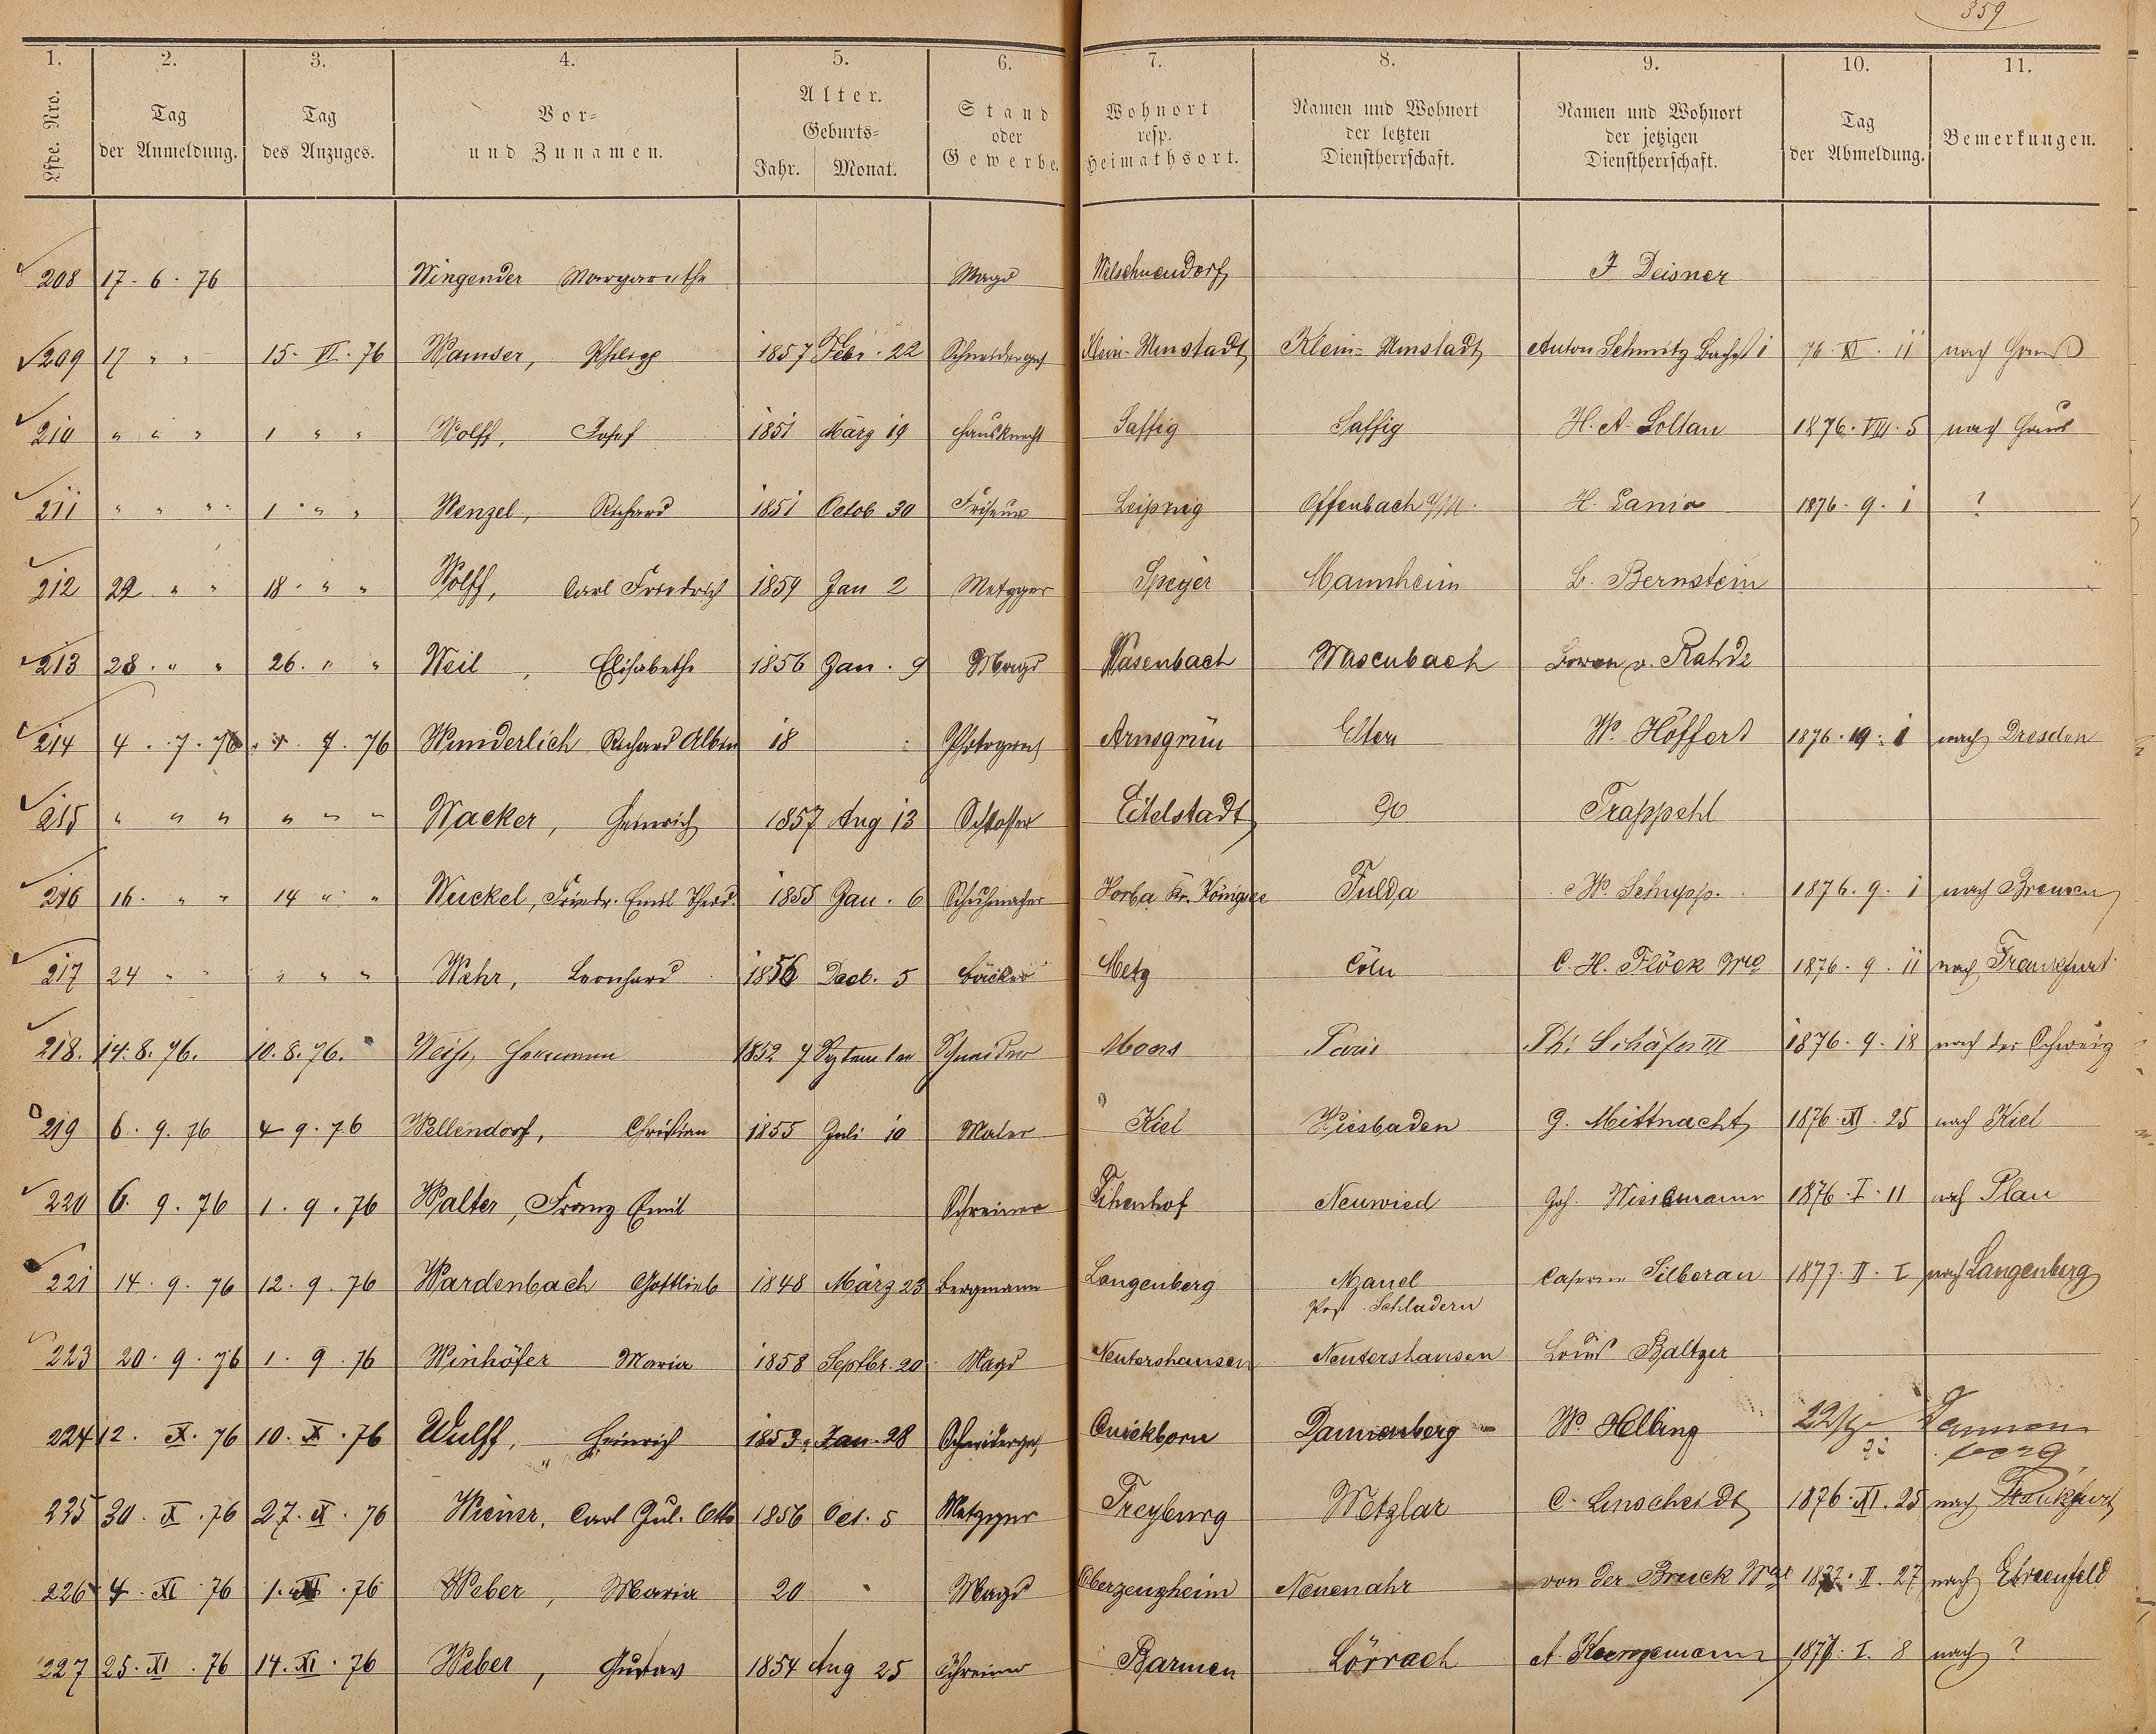 359
1. 2. 3. 4. 5. 6. 7. 8. 9. 10. 11.
Lfde. Nro. Tag der Anmeldung. Tag des Anzuges. Vor- und Zunamen. Alter. Geburts- Jahr. Monat. Stand oder Gewerbe. Wohnort resp. Heimathsort. Namen und Wohnort der letzten Dienstherrschaft. Namen und Wohnort der jetzigen Dienstherrschaft. Tag der Abmeldung. Bemerkungen.
208 17. 6. 76 Wingender Margarethe Magd Welschneudorf J Deisner
209 17 " " 15. VI. 76 Wamser, Philipp 1857 Febr. 22 Schneiderges Klein-Umstadt Klein-Umstadt Anton Schmitz 76. XI. 11 nach Haus
210 " " " 1 " " Wolff, Josef 1851 März 19 Hausknecht Saffig Saffig H. A. Soltau 1876. VIII. 5 nach Haus
211 " " " 1 " " Wenzel, Richard 1851 Octob 30 Friseur Leipzig Offenbach a/M. H. Lania 1876. 9. 1 ?
212 22 " " 18. " " Wolff, Carl Friedrich 1859 Jan 2 Metzger Speyer Mannheim L. Bernstein
213 28. " " 26. " " Weil, Elisabethe 1856 Jan. 9 Magd Wasenbach Wasenbach v. Rahde
214 4. 7. 76 7. 76 Wunderlich Richard Albin 18 Photograph Arnsgrün Eltern W. Höffert 1876. i nach Dresden
215 " " " " " " Wacker, Heinrich 1857 Aug 13 Schlosser Eitelstadt do Trappehl
216 16. " " 14 " " Wuckel, Friedr. Emil Theod. 1855 Jan. 6 Schuhmacher Horba Kr. Königsee Fulda W. Schupp. 1876. 9. 1 nach Bremen
217 24 " " " " " Wehr, Leonhard 1856 Decb. 5 Bäcker Metz Cöln C. H. Flöck Wwe 1876. 9. 11 nach Frankfurt
218. 14. 8. 76. 10. 8. 76. Weiß, Hermann 1852 7 September Schneider Moers Paris Ph: Schäfer III 1876. 9. 18 nach der Schweiz
219 6. 9. 76 4 9. 76 Wellendorf, Christian 1855 Juli 10 Maler Kiel Wiesbaden G. Mittnacht 1876. XI. 25 nach Kiel
220 6. 9. 76 1. 9. 76 Walter, Franz Emil Schreiner Neuwied Joh. Wissmann 1876. I. 11 nach Plau
221 14. 9. 76 12. 9. 76 Wardenbach Gottlieb 1848 März 23 Bergmann Langenberg Manel Post Schladern Caserne Silberau 1877. II. I nach Langenberg
223 20. 9. 76 1. 9. 76 Winhöfer Maria 1858 Septbr. 20 Magd Nentershausen Nentershausen Louis Baltzer
224 12. X. 76 10. X. 76 Wulff, Heinrich 1853 Jan. 28 Schneiderges Quickborn Dannenberg W. Helbing Dannenberg
225 30. X. 76 27. X. 76 Wiener, Carl Jul. Otto 1856 Oct. 5 Metzger Freyburg Wetzlar C. Linscheidt 1876. XI. 25 nach Frankfurt
226 4. XI. 76 1. XI. 76 Weber, Maria 20 Magd Oberzeuzheim Neuenahr von der Bruck Wwe 1877. II. 27 nach Ehrenfeld
227 25. XI. 76 14. XI. 76 Weber, Gustav 1854 Aug 25 Schreiner Barmen Lörrach A. 1877. I. 8 nach ?